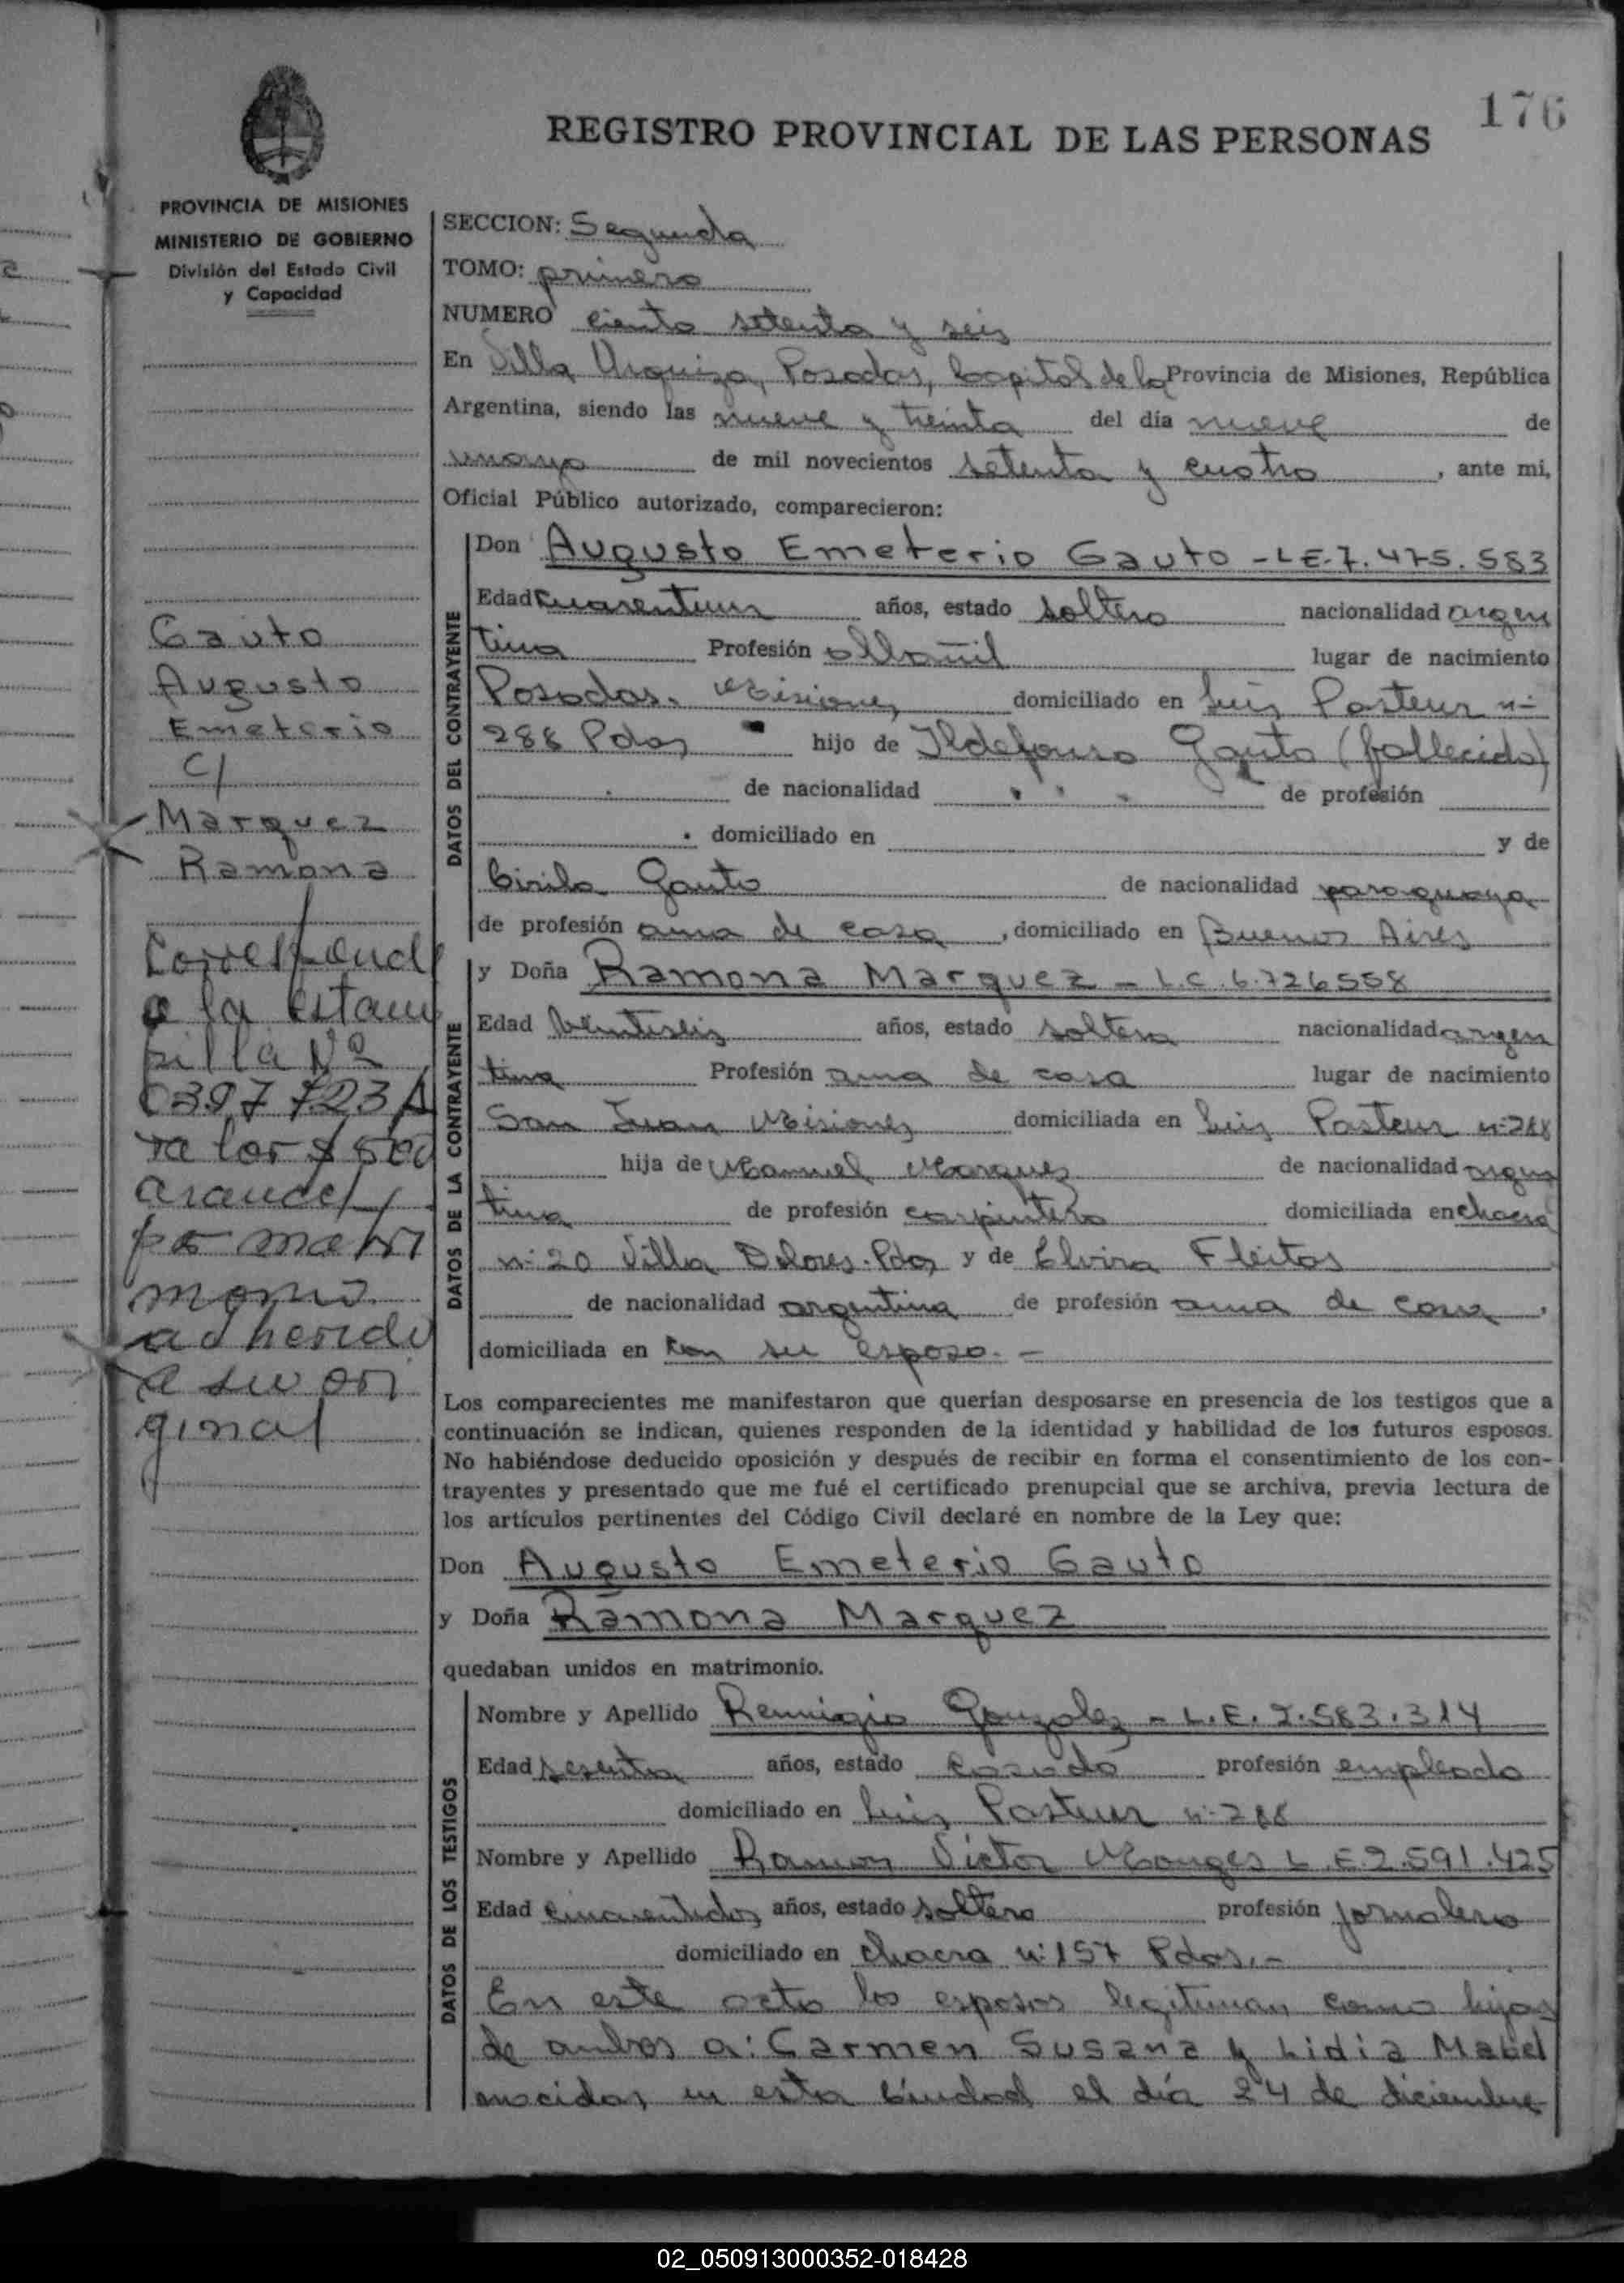 176
REGISTRO PROVINCIAL DE LAS PERSONAS
PROVINCIA DE MISIONES
MINISTERIO DE GOBIERNO
División del Estado Civil
y Capacidad
Gauto
Augusto
Emeterio
C/
Marquez
Ramona
Corresponde
a la estam
pilla Nº
0397723A
valor $ 500
arancel
po matri
monio
adherida
a su ori
ginal
SECCION: Segunda
TOMO: primero
NUMERO ciento setenta y seis
En Villa Urquiza, Posadas, Capital de la Provincia de Misiones, República
Argentina, siendo las nueve y treinta del día nueve de
mayo de mil novecientos setenta y cuatro, ante mi,
Oficial Público autorizado, comparecieron:
DATOS DEL CONTRAYENTE
Don Augusto Emeterio Gauto - L.E. 7.475.583
Edad cuarentiun años, estado soltero nacionalidad argen
tina Profesión albañil lugar de nacimiento
Posadas. Misiones domiciliado en Luis Pasteur nº
288 Pdas hijo de Ildefonso Gauto (fallecido)
de nacionalidad de profesión
domiciliado en y de
Cirila Gauto de nacionalidad paraguaya
de profesión ama de casa, domiciliado en Buenos Aires
DATOS DE LA CONTRAYENTE
y Doña Ramona Marquez - L.C. 6.726558
Edad veintiseis años, estado soltera nacionalidad argen
tina Profesión ama de casa lugar de nacimiento
San Juan Misiones domiciliada en Luis Pasteur nº 288
hija de Manuel Marquez de nacionalidad argen
tina de profesión carpintero domiciliada en chacra
nº 20 Villa Dolores. Pdas y de Elvira Fleitas
de nacionalidad argentina de profesión ama de casa,
domiciliada en con su esposo. -
Los comparecientes me manifestaron que querían desposarse en presencia de los testigos que a
continuación se indican, quienes responden de la identidad y habilidad de los futuros esposos.
No habiéndose deducido oposición y después de recibir en forma el consentimiento de los con-
trayentes y presentado que me fué el certificado prenupcial que se archiva, previa lectura de
los artículos pertinentes del Código Civil declaré en nombre de la Ley que:
Don Augusto Emeterio Gauto
y Doña Ramona Marquez
quedaban unidos en matrimonio.
DATOS DE LOS TESTIGOS
Nombre y Apellido Remigio Gonzalez - L.E. 2.583.314
Edad sesenta años, estado casado profesión empleado
domiciliado en Luis Pasteur nº 288
Nombre y Apellido Ramon Victor Monges L.E. 2.591.425
Edad cincuentidos años, estado soltero profesión jornalero
domiciliado en chacra nº 157 Pdas. -
En este acto los esposos legitiman como hijas
de ambos a: Carmen Susana y Lidia Mabel
nacidas en esta Ciudad el día 24 de diciembre
02_050913000352-018428